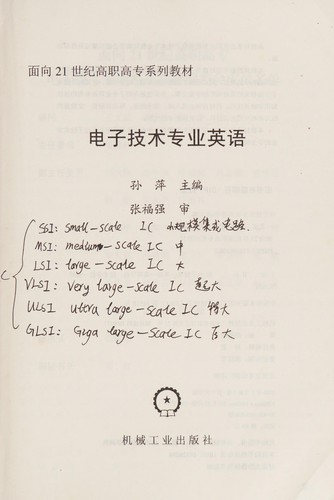 面向 21 世纪高职高专系列教材
电子技术专业英语
孙 萍 主编
张福强 审
SSI: small-scale IC 小规模集成电路.
MSI: medium-scale IC 中
LSI: large-scale IC 大
VLSI: Very large-scale IC 超大
ULSI ultra large-scale IC 特大
GLSI: Giga large-Scale IC 巨大
机械工业出版社